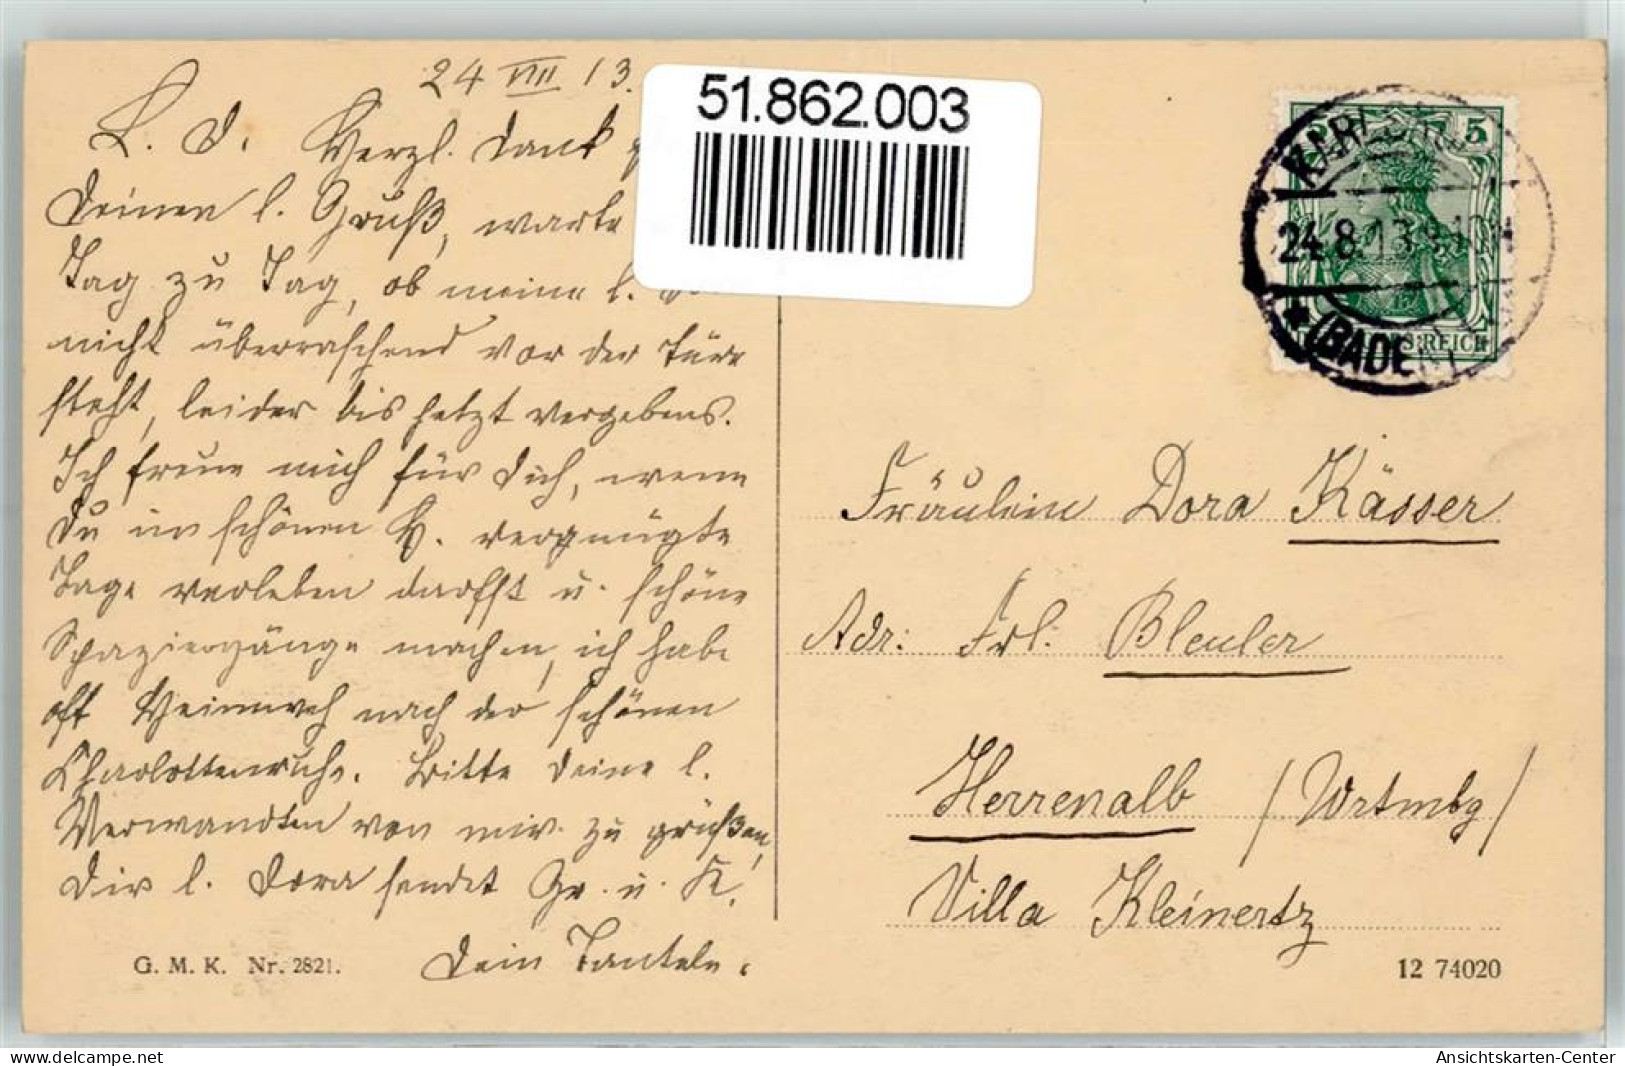 24 VIII 13.
L. D. Herzl. Dank
Deinen l. Gruß, warte
Tag zu Tag, ob meine l.
nicht überraschend vor der Türe
steht, leider bis jetzt vergebens.
Ich freue mich für Dich, wenn
Du im schönen H. vergnügte
Tage verleben darfst u. schöne
Spaziergänge machen, ich habe
oft Heimweh nach der schönen
Charlottenruhe. Bitte Deine l.
Verwandten von mir zu grüßen,
Dir l. Dora sendet Gr. u. K.
Dein Tantele.
G. M. K. Nr. 2821.
51.862.003
KARLSRUHE
24.8.13.
* (BADEN)
5
REICH
Fräulein Dora Kässer
Adr: Frl. Bleuler
Herrenalb / Wrtmbg /
Villa Kleinertz
12 74020
www.delcampe.net dietrolldose
Ansichtskarten-Center